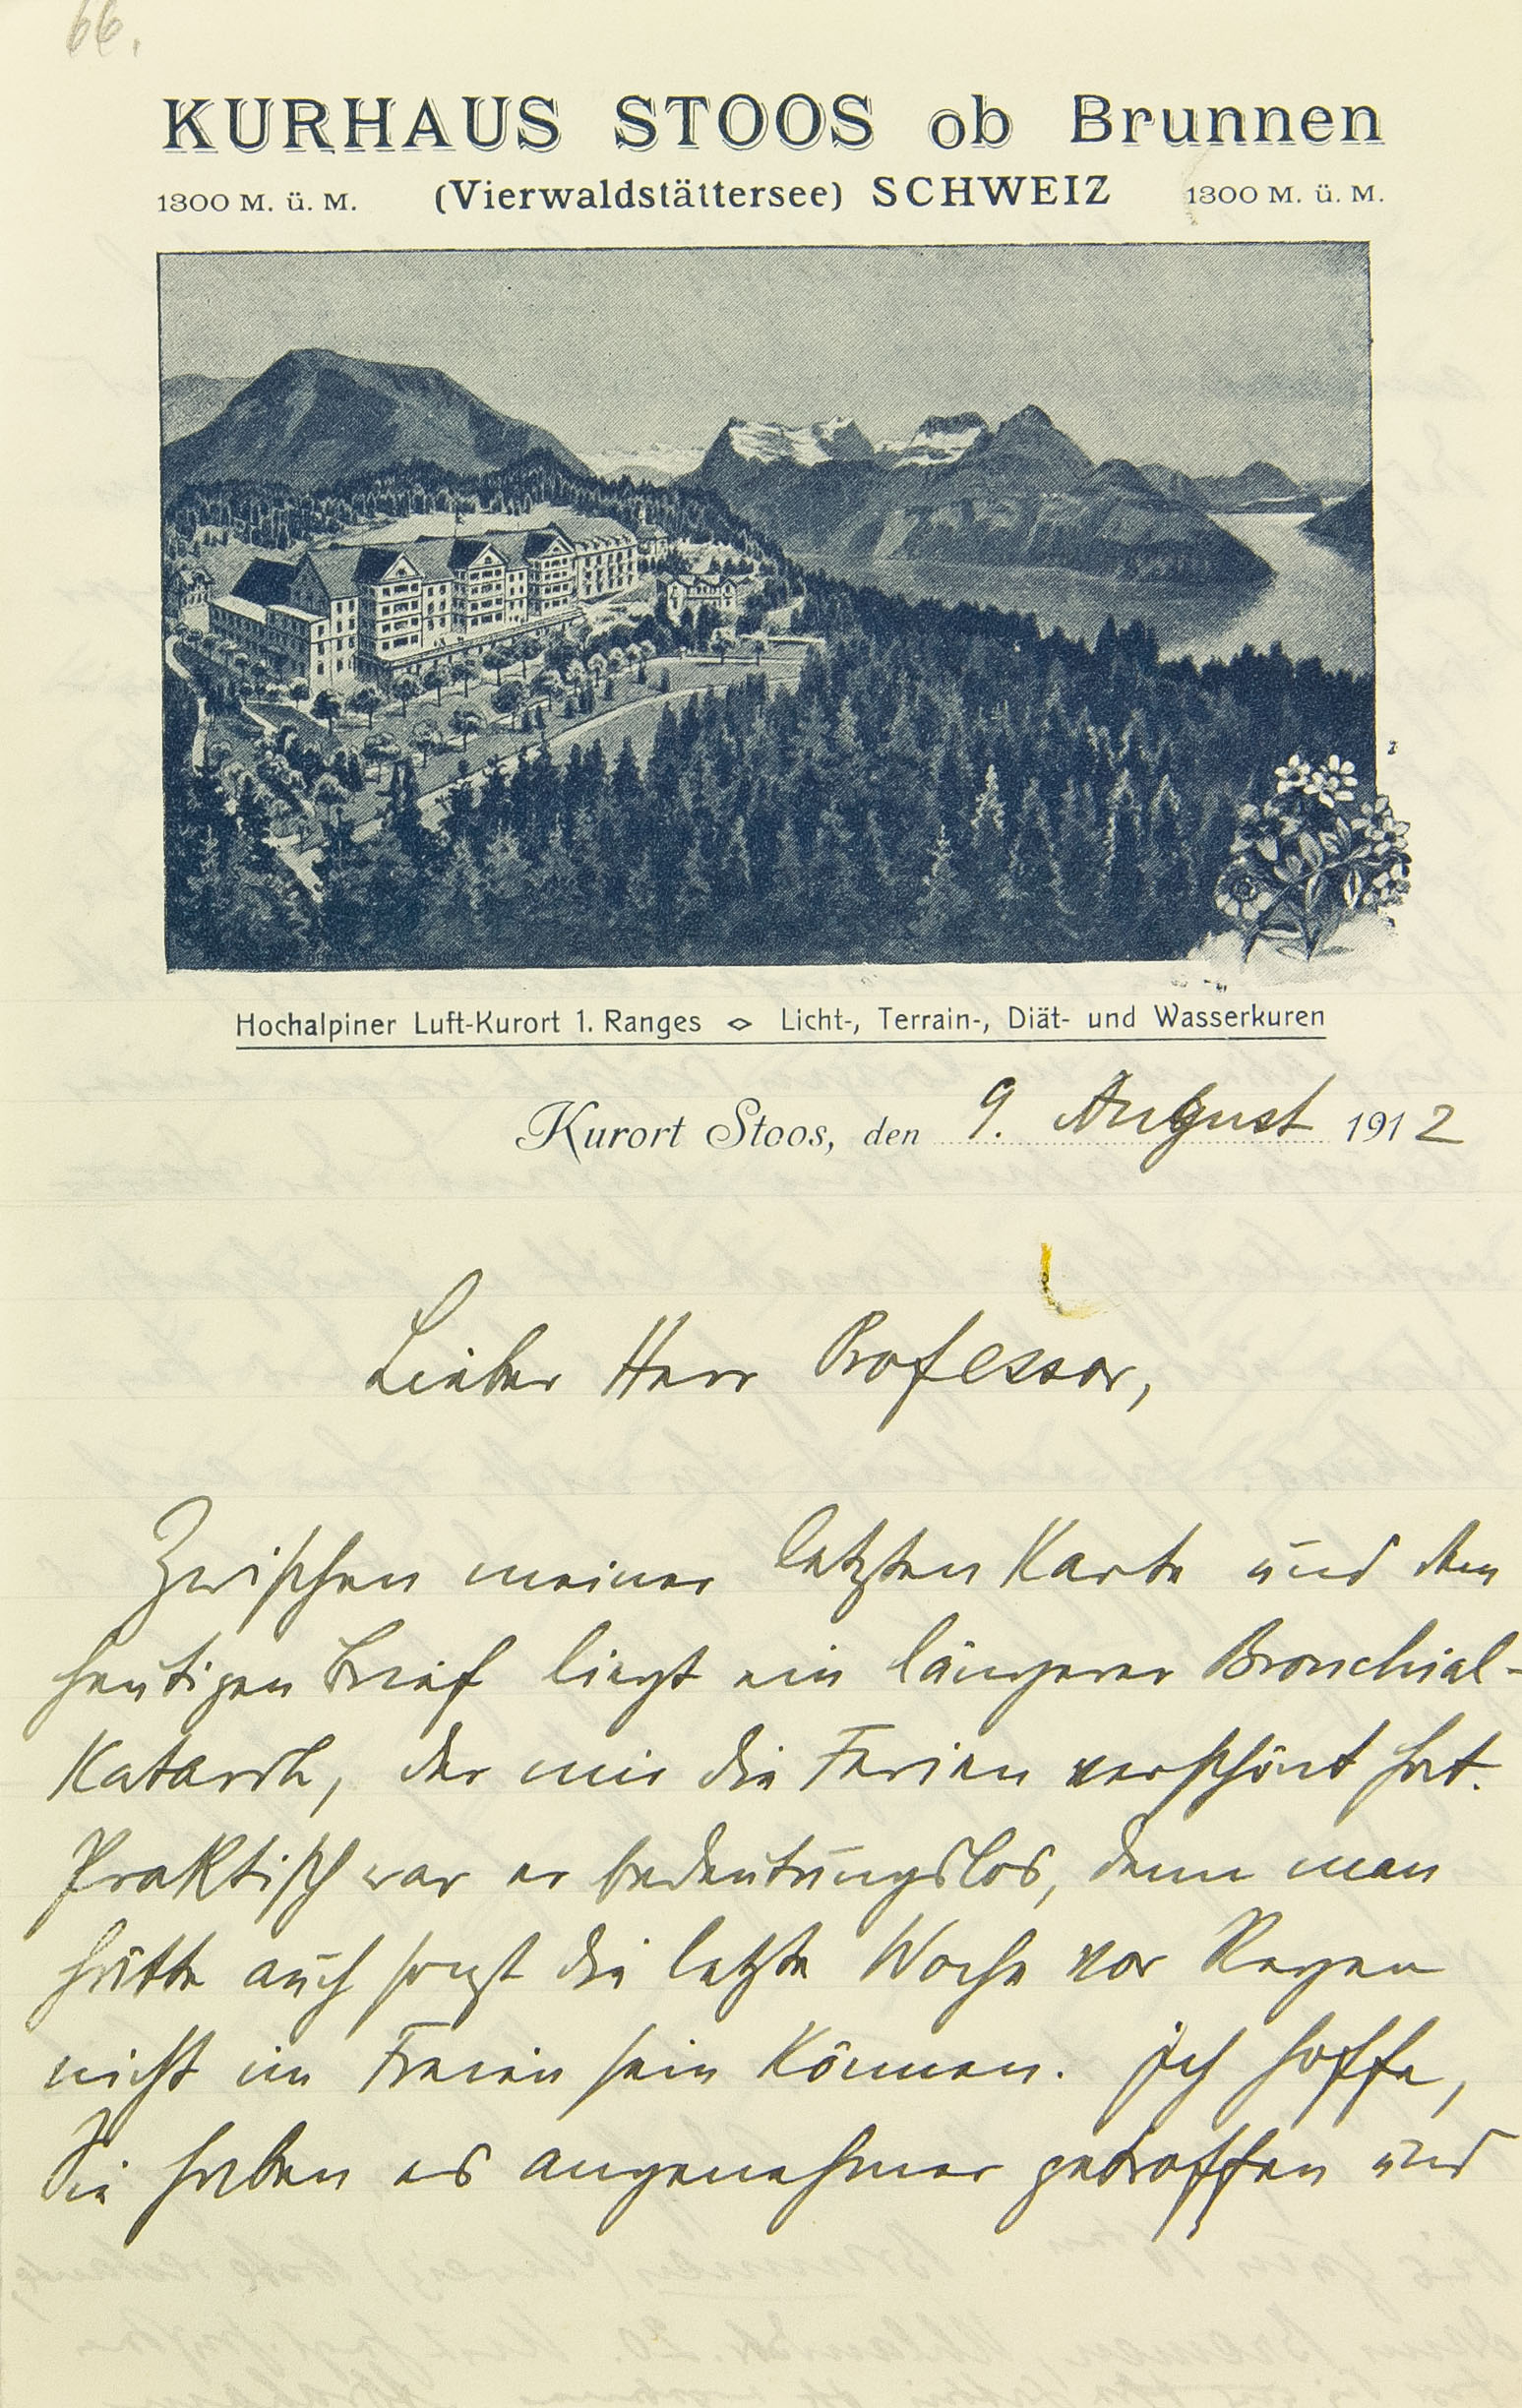 66.
KURHAUS STOOS ob Brunnen
1300 M. ü. M. (Vierwaldstättersee) SCHWEIZ 1300 M. ü. M.
Hochalpiner Luft-Kurort 1. Ranges ◇ Licht-, Terrain-, Diät- und Wasserkuren
Kurort Stoos, den 9. August 1912
Lieber Herr Professor,
Zwischen meiner letzten Karte und dem
heutigen Brief liegt ein längerer Bronchial-
Katarrh, der mir die Ferien verschönt hat.
Praktisch war er bedeutungslos, denn man
hätte auch sonst die letzte Woche vor Regen
nicht im Freien sein können. Ich hoffe,
Sie haben es angenehmer getroffen und